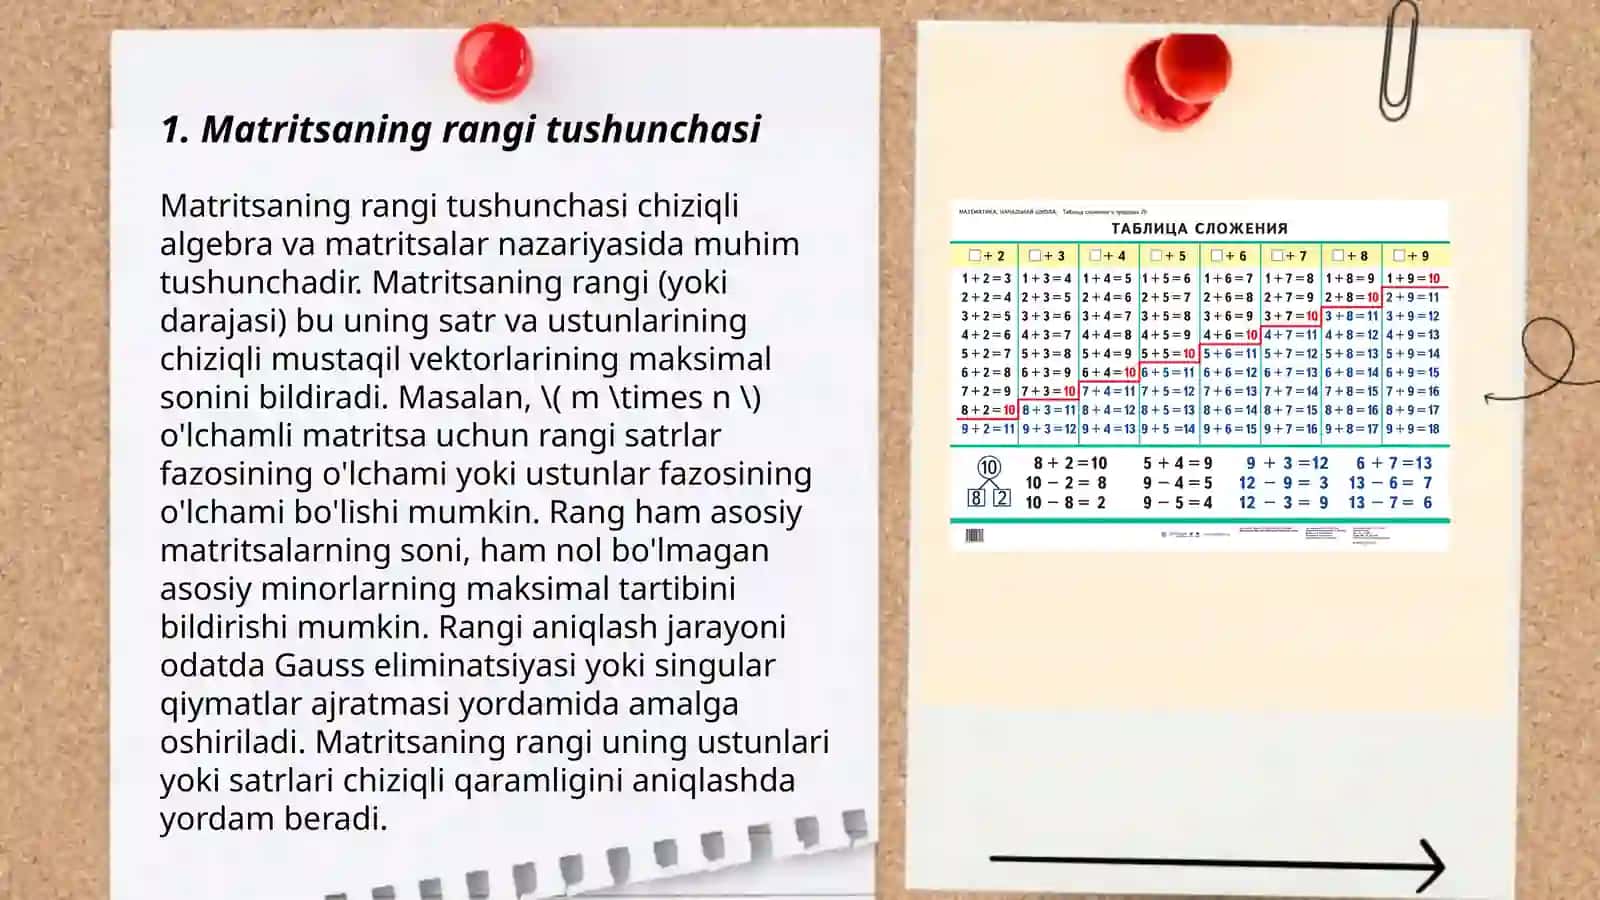 1. Matritsaning rangi tushunchasi
Matritsaning rangi tushunchasi chiziqli
algebra va matritsalar nazariyasida muhim
tushunchadir. Matritsaning rangi (yoki
darajasi) bu uning satr va ustunlarining
chiziqli mustaqil vektorlarining maksimal
sonini bildiradi. Masalan, \( m \times n \)
o'lchamli matritsa uchun rangi satrlar
fazosining o'lchami yoki ustunlar fazosining
o'lchami bo'lishi mumkin. Rang ham asosiy
matritsalarning soni, ham nol bo'lmagan
asosiy minorlarning maksimal tartibini
bildirishi mumkin. Rangi aniqlash jarayoni
odatda Gauss eliminatsiyasi yoki singular
qiymatlar ajratmasi yordamida amalga
oshiriladi. Matritsaning rangi uning ustunlari
yoki satrlari chiziqli qaramligini aniqlashda
yordam beradi.
МАТЕМАТИКА. НАЧАЛЬНАЯ ШКОЛА. Таблица сложения в пределах 20
ТАБЛИЦА СЛОЖЕНИЯ
□+ 2 □+ 3 □+ 4 □+ 5 □+ 6 □+ 7 □+ 8 □+ 9
1+2=3 1+3=4 1+4=5 1+5=6 1+6=7 1+7=8 1+8=9 1+9=10
2+2=4 2+3=5 2+4=6 2+5=7 2+6=8 2+7=9 2+8=10 2+9=11
3+2=5 3+3=6 3+4=7 3+5=8 3+6=9 3+7=10 3+8=11 3+9=12
4+2=6 4+3=7 4+4=8 4+5=9 4+6=10 4+7=11 4+8=12 4+9=13
5+2=7 5+3=8 5+4=9 5+5=10 5+6=11 5+7=12 5+8=13 5+9=14
6+2=8 6+3=9 6+4=10 6+5=11 6+6=12 6+7=13 6+8=14 6+9=15
7+2=9 7+3=10 7+4=11 7+5=12 7+6=13 7+7=14 7+8=15 7+9=16
8+2=10 8+3=11 8+4=12 8+5=13 8+6=14 8+7=15 8+8=16 8+9=17
9+2=11 9+3=12 9+4=13 9+5=14 9+6=15 9+7=16 9+8=17 9+9=18
10 8+2=10 5+4=9 9+3=12 6+7=13
10−2=8 9−4=5 12−9=3 13−6=7
8 2 10−8=2 9−5=4 12−3=9 13−7=6